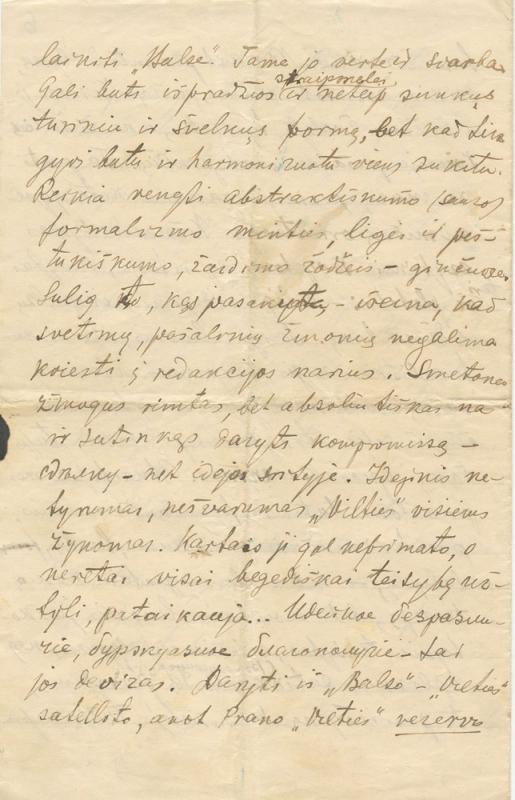 laikiti "Balse". Tame jo vertė ir svarba.
Gali buts išpradžios ir straipsnelei neteip sunkųs
turiniu ir švelnųs formą, bet kad tik
gyvi butų ir harmonizuotų viens sukitu.
Reikia vengti abstraktiškumo (sauso)
formalizmo minties, ligei ir peš-
tukiškumo, žaidimo žodžeis –
sulig to, kas pasakyta – išeina, kad
svetimų, pašalinių žmonių negalima
kviesti į redakcijos narius. Smetona
žmogus rimtas, bet absoliutiškas
ir sutinkąs daryti kompromissą –
сдѣлку – net idejos srityje. Idejinis ne-
tyrumas, nešvarumas "Vilties" visiems
žynomas. Kartais ji gal neprimato, o
neretai visai begediškai teisybę už-
tyli, pataikauja... Идейное безразли-
чие, буржуазное благополучие – tai
jos devizas. Daryti iš "Balso" – "Vilties"
satellito, anot Prano "Vilties" rezervo